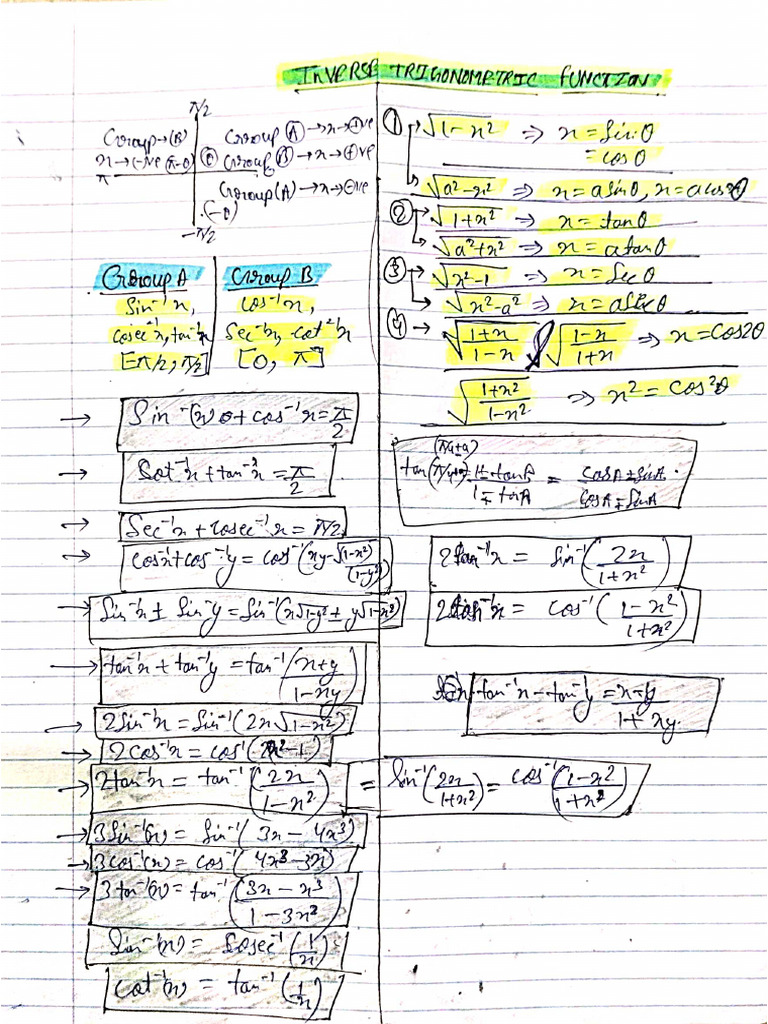 INVERSE TRIGONOMETRIC FUNCTION
π/2
Group→(B) Group Ⓐ→x→⊕ve
x→⊖ve (π-θ) ⓪ Group Ⓑ→x→⊕ve
π Group(A)→x→⊖ve
(-θ)
-π/2
Group A | Group B
Sin⁻¹x, | cos⁻¹x,
cosec⁻¹x, tan⁻¹x | Sec⁻¹x, cot⁻¹x
[-π/2, π/2] | [0, π]
→ Sin⁻¹(x) + cos⁻¹x = π/2
→ Cot⁻¹x + tan⁻¹x = π/2
→ Sec⁻¹x + Cosec⁻¹x = π/2
→ cos⁻¹x + cos⁻¹y = cos⁻¹(xy - √(1-x²)(1-y²))
→ Sin⁻¹x ± Sin⁻¹y = Sin⁻¹(x√1-y² ± y√1-x²)
→ tan⁻¹x + tan⁻¹y = tan⁻¹(x+y/1-xy)
→ 2Sin⁻¹x = Sin⁻¹(2x√1-x²)
→ 2cos⁻¹x = cos⁻¹(2x²-1)
→ 2tan⁻¹x = tan⁻¹(2x/1-x²) = Sin⁻¹(2x/1+x²) = cos⁻¹(1-x²/1+x²)
→ 3Sin⁻¹(x) = Sin⁻¹(3x - 4x³)
→ 3cos⁻¹(x) = cos⁻¹(4x³ - 3x)
→ 3tan⁻¹(x) = tan⁻¹(3x - x³/1 - 3x²)
Sin⁻¹(x) = Cosec⁻¹(1/x)
Cot⁻¹(x) = tan⁻¹(1/x)
① → √1-x² ⇒ x = Sinθ
= cosθ
→ √a²-x² ⇒ x = asinθ, x = acosθ
② → √1+x² ⇒ x = tanθ
→ √a²+x² ⇒ x = atanθ
③ → √x²-1 ⇒ x = Secθ
→ √x²-a² ⇒ x = aSecθ
④ → √1+x/1-x √1-x/1+x ⇒ x = Cos2θ
√1+x²/1-x² ⇒ x² = Cos2θ
tan = 1±tanA/1∓tanA = CosA±SinA/CosA∓SinA
2tan⁻¹x = Sin⁻¹(2x/1+x²)
2tan⁻¹x = cos⁻¹(1-x²/1+x²)
tan⁻¹x - tan⁻¹y = x-y/1+xy